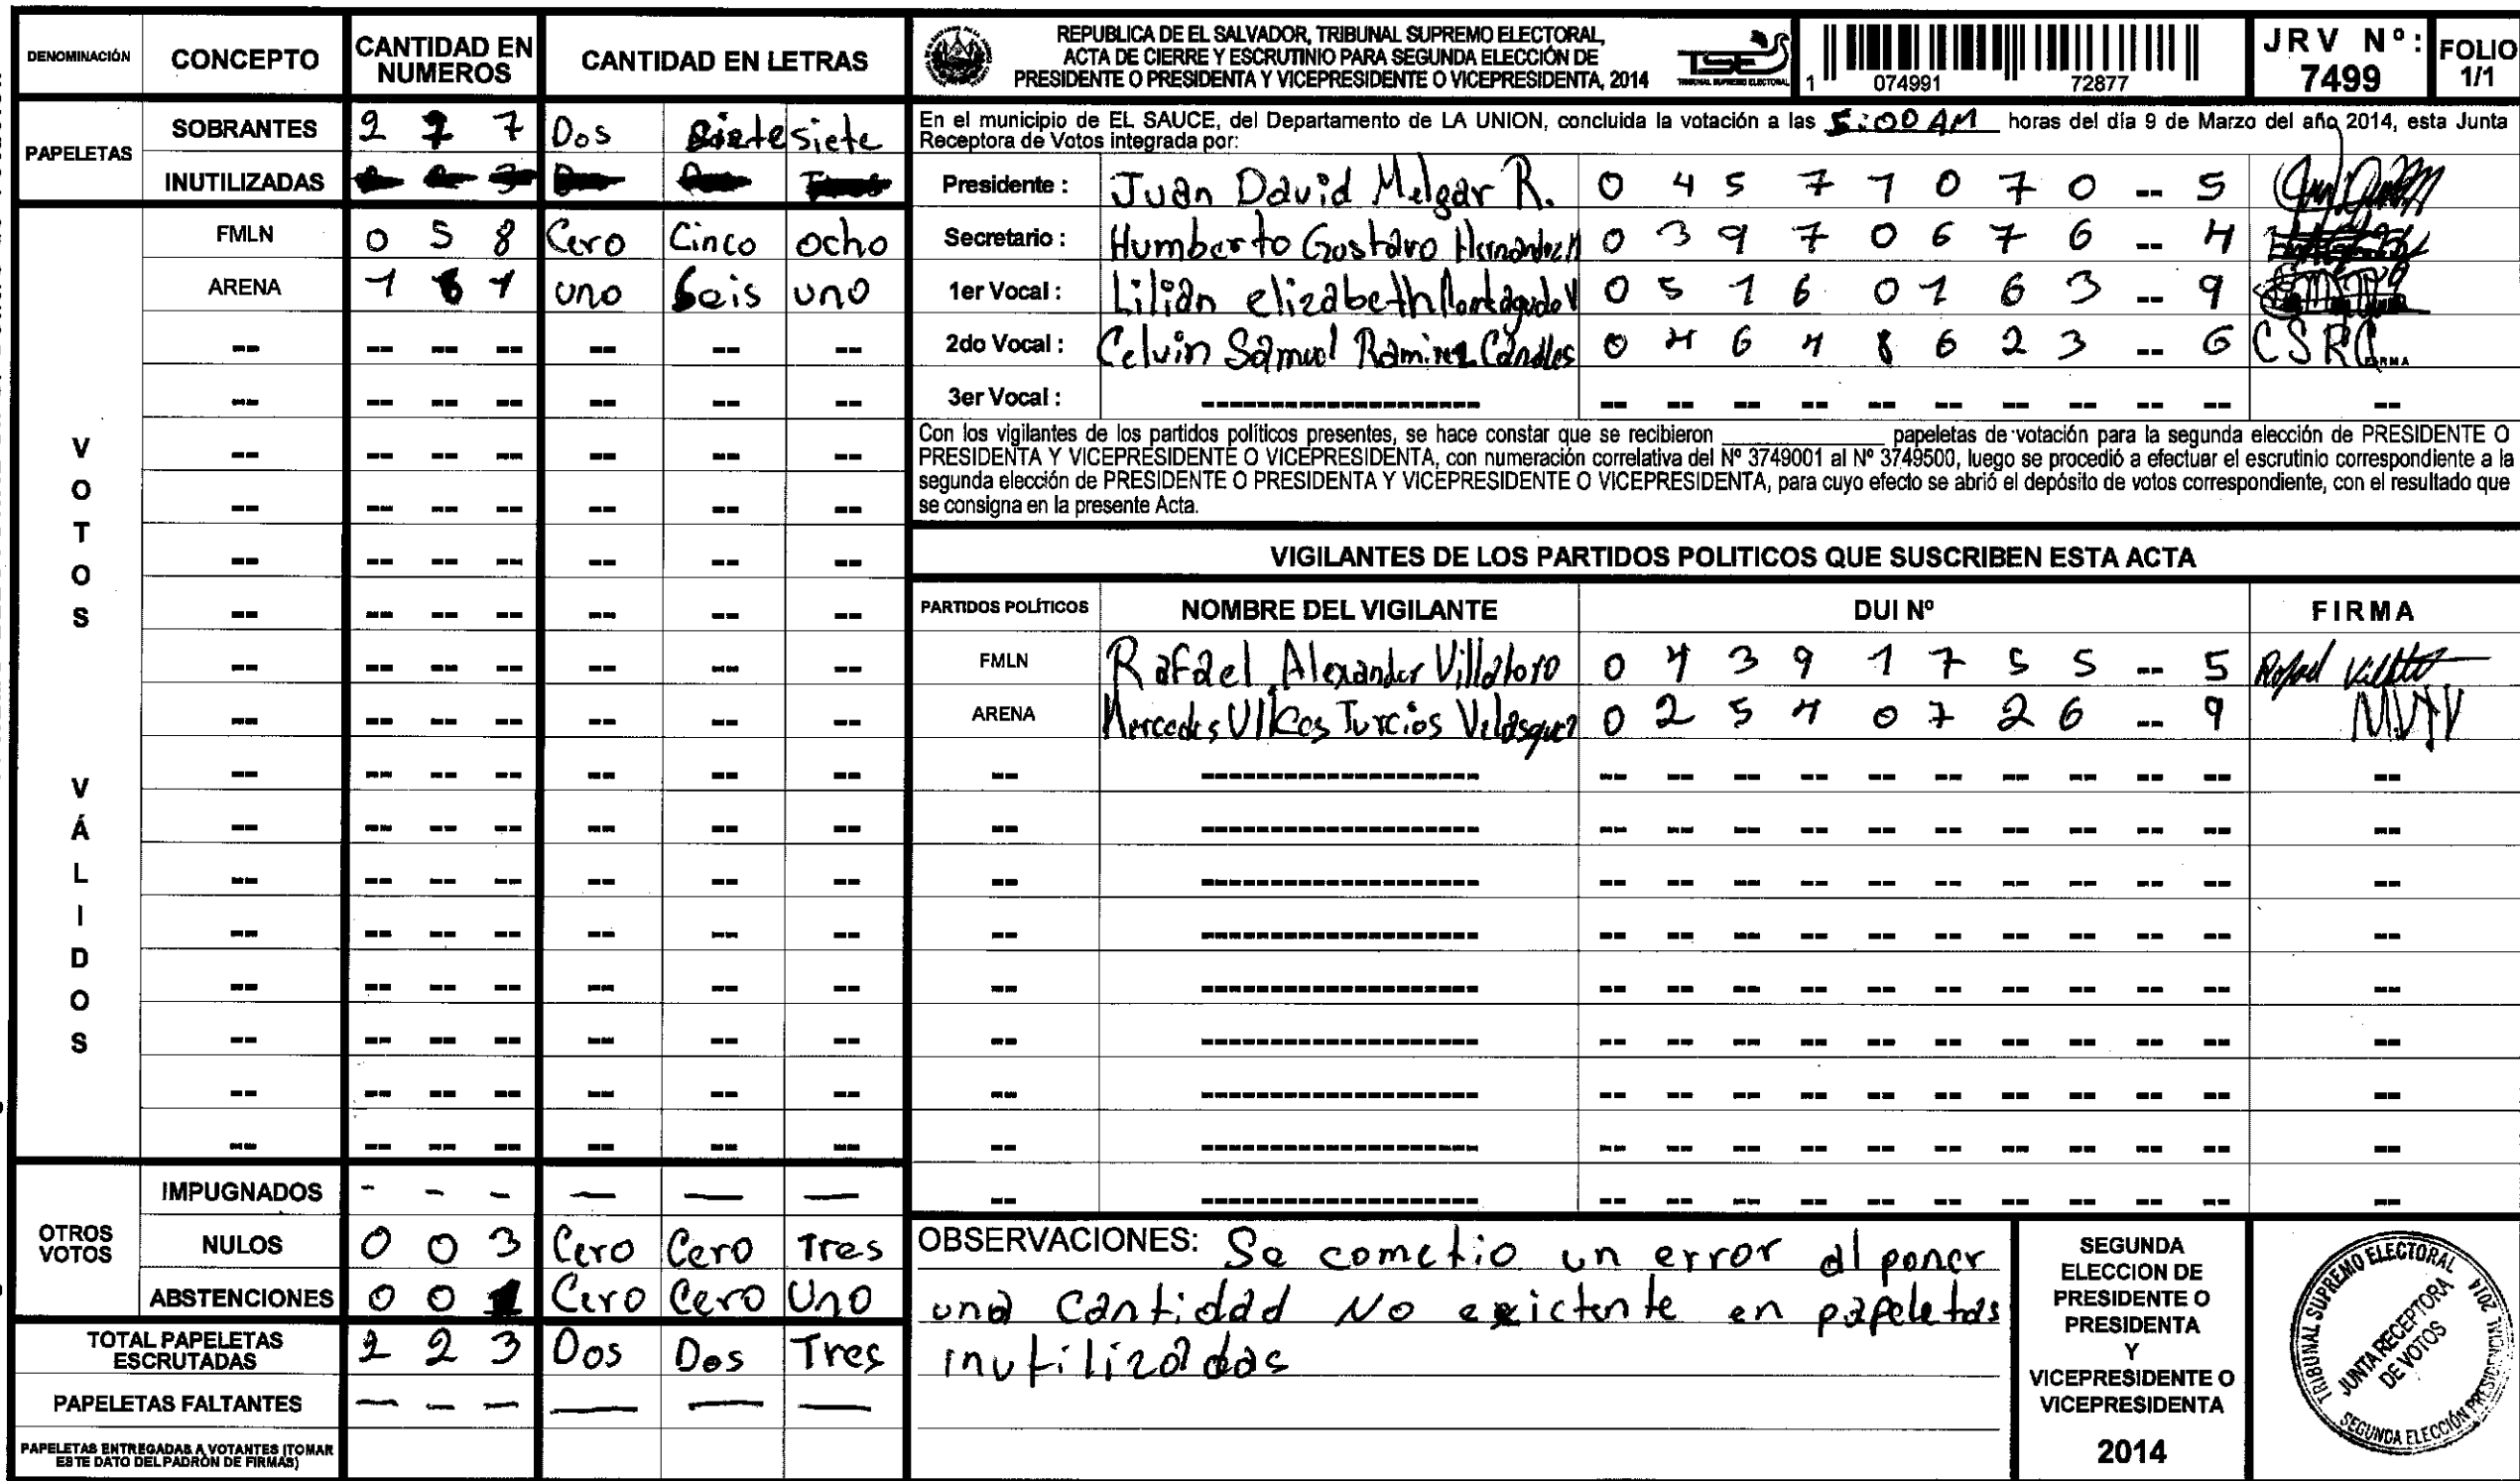 DENOMINACIÓN CONCEPTO CANTIDAD EN NUMEROS CANTIDAD EN LETRAS
PAPELETAS
SOBRANTES 2 7 7 Dos Siete siete
INUTILIZADAS
VOTOS VÁLIDOS
FMLN 0 5 8 Cero Cinco ocho
ARENA 1 6 1 uno Seis uno
OTROS VOTOS
IMPUGNADOS - - - — — —
NULOS 0 0 3 Cero Cero Tres
ABSTENCIONES 0 0 1 Cero Cero Uno
TOTAL PAPELETAS ESCRUTADAS 2 2 3 Dos Dos Tres
PAPELETAS FALTANTES — — — — — —
PAPELETAS ENTREGADAS A VOTANTES (TOMAR ESTE DATO DEL PADRÓN DE FIRMAS)
REPUBLICA DE EL SALVADOR, TRIBUNAL SUPREMO ELECTORAL,
ACTA DE CIERRE Y ESCRUTINIO PARA SEGUNDA ELECCIÓN DE
PRESIDENTE O PRESIDENTA Y VICEPRESIDENTE O VICEPRESIDENTA, 2014
TSE
TRIBUNAL SUPREMO ELECTORAL
1 074991 72877
JRV Nº: 7499
FOLIO 1/1
En el municipio de EL SAUCE, del Departamento de LA UNION, concluida la votación a las 5:00 AM horas del día 9 de Marzo del año 2014, esta Junta
Receptora de Votos integrada por:
Presidente : Juan David Melgar R. 0 4 5 7 1 0 7 0 -- 5
Secretario : Humberto Gustavo Hernandez 0 3 9 7 0 6 7 6 -- 4
1er Vocal : Lilian elizabeth 0 5 1 6 0 1 6 3 -- 9
2do Vocal : Celvin Samuel Ramirez 0 4 6 4 8 6 2 3 -- 6 CSRC
FIRMA
3er Vocal :
Con los vigilantes de los partidos políticos presentes, se hace constar que se recibieron ____ papeletas de votación para la segunda elección de PRESIDENTE O
PRESIDENTA Y VICEPRESIDENTE O VICEPRESIDENTA, con numeración correlativa del Nº 3749001 al Nº 3749500, luego se procedió a efectuar el escrutinio correspondiente a la
segunda elección de PRESIDENTE O PRESIDENTA Y VICEPRESIDENTE O VICEPRESIDENTA, para cuyo efecto se abrió el depósito de votos correspondiente, con el resultado que
se consigna en la presente Acta.
VIGILANTES DE LOS PARTIDOS POLITICOS QUE SUSCRIBEN ESTA ACTA
PARTIDOS POLÍTICOS NOMBRE DEL VIGILANTE DUI Nº FIRMA
FMLN Rafael Alexander Villatoro 0 4 3 9 1 7 5 5 -- 5 Rafael
ARENA Mercedes Turcios Velasquez 0 2 5 4 0 7 2 6 -- 9 MVTV
OBSERVACIONES: Se cometio un error al poner
una cantidad No exictente en papeletas
inutilizadas
SEGUNDA
ELECCION DE
PRESIDENTE O
PRESIDENTA
Y
VICEPRESIDENTE O
VICEPRESIDENTA
2014
TRIBUNAL SUPREMO ELECTORAL
JUNTA RECEPTORA
DE VOTOS
SEGUNDA ELECCIÓN PRESIDENCIAL 2014